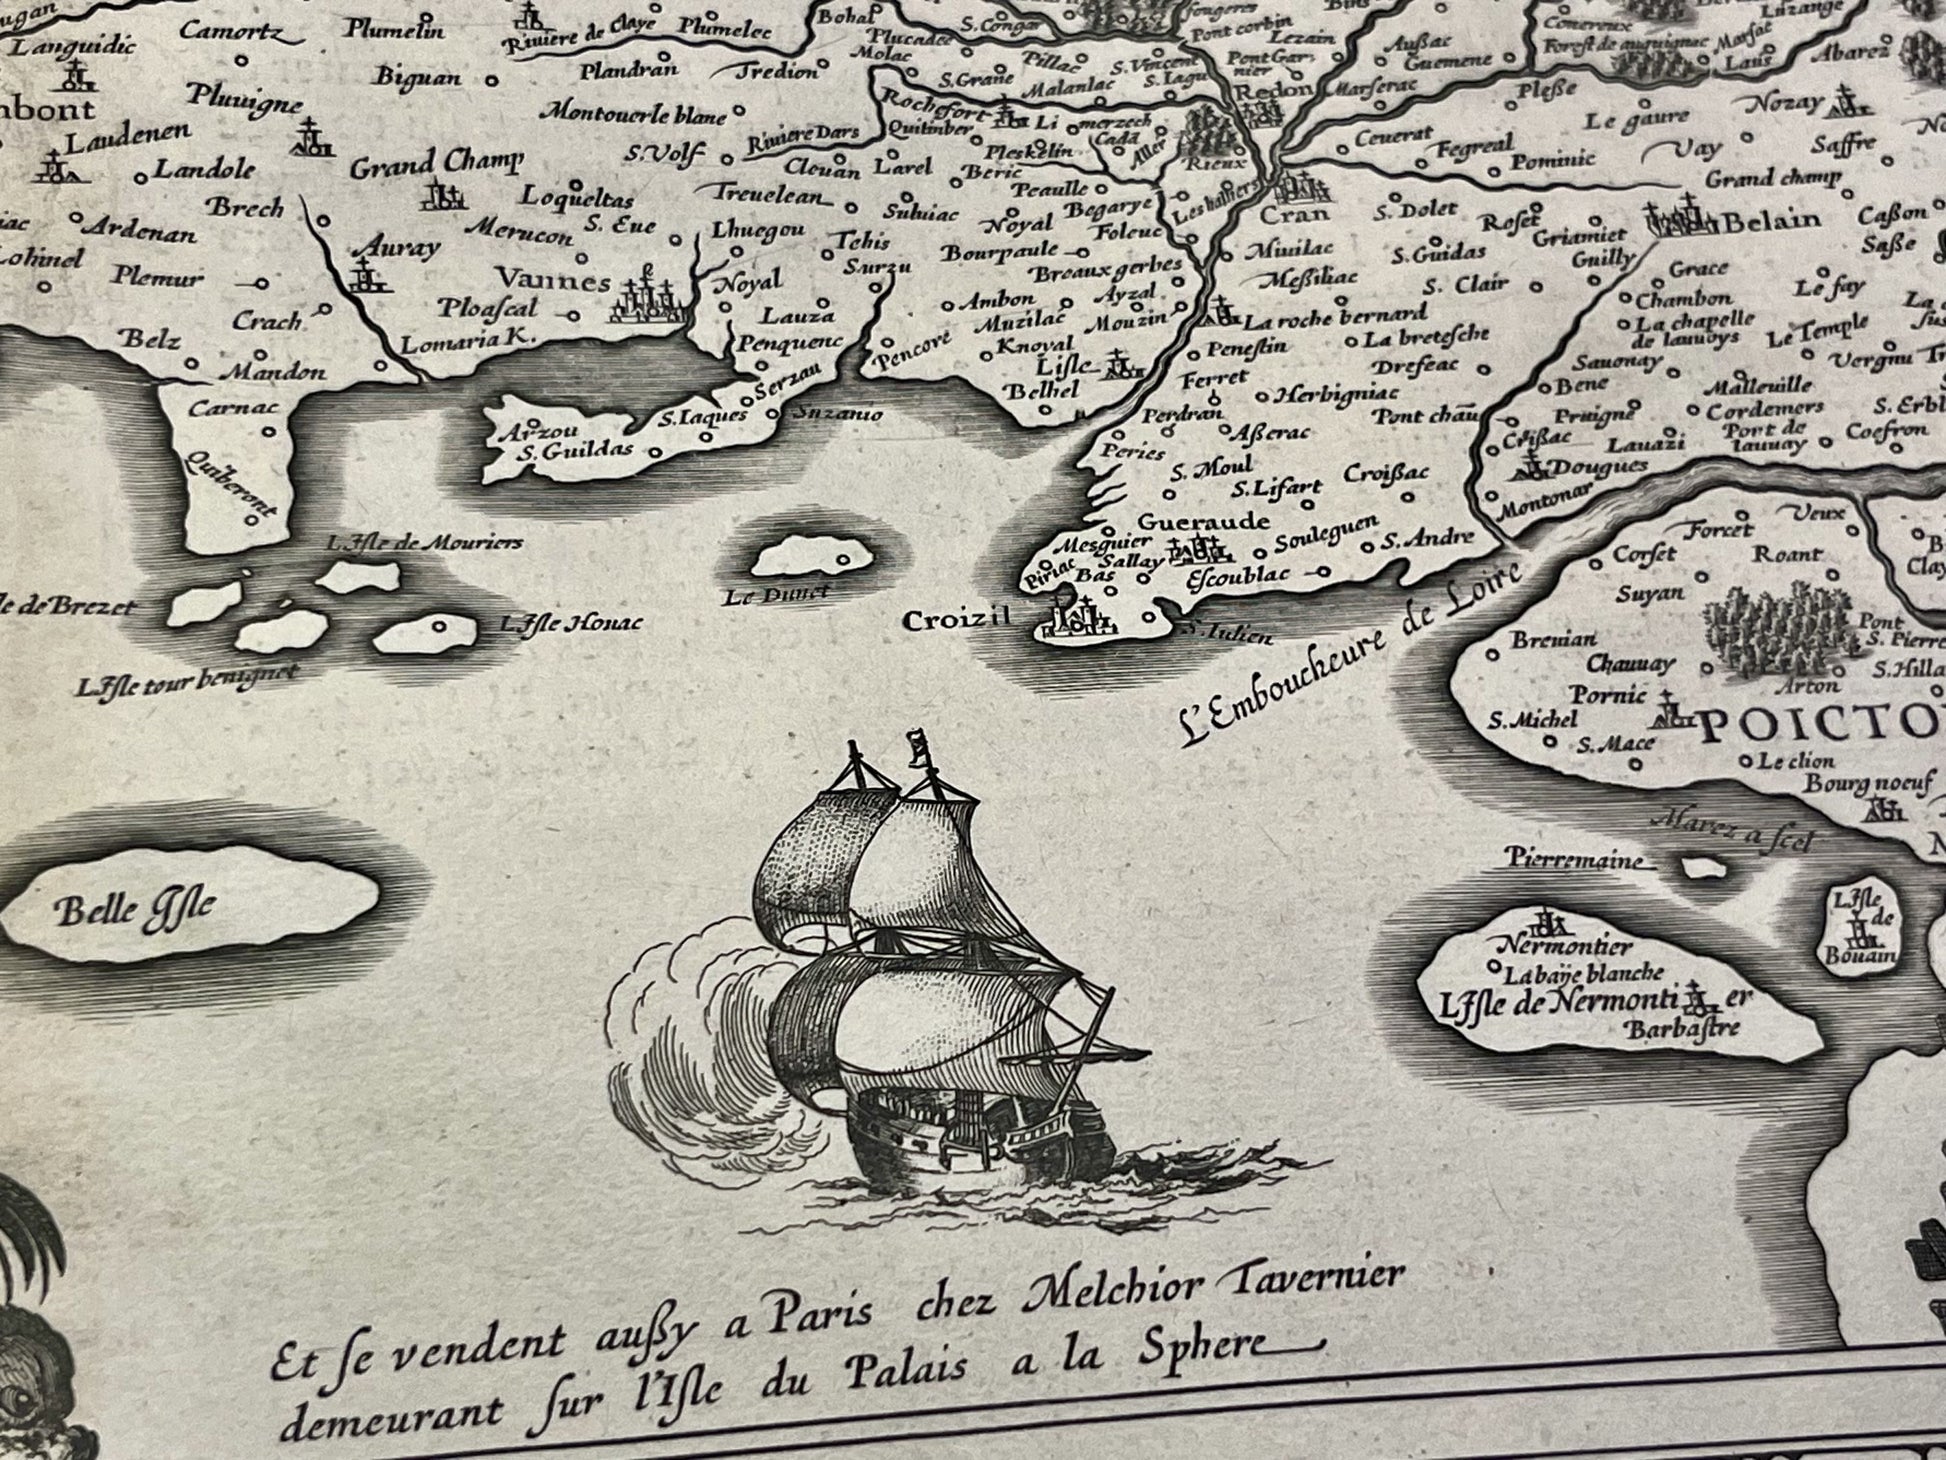 Languidic
Camortz
Plumelin
Riviere de Claye
Plumelec
Bohal
Plucadec
Molac
S. Congar
fougeres
Pont corbin
Lezain
Außac
Guemene
Conereux
Forest de auguignac
Marsac
Laus
Luzange
Abarez
Biguan
Plandran
Tredion
S. Grane
Pillac
Malanlac
S. Vincent
S. Lagu
Pont Gar
nier
Redon
Marserac
Pleße
Nozay
mbont
Pluuigne
Montouerle blane
Rochefort
Li
merzech
Cada
Le gaure
Laudenen
Riviere Dars
Quitinber
Pleskelin
Aller
Rieux
Ceuerat
Fegreal
Pominic
Vay
Saffre
Landole
Grand Champ
S. Volf
Cleuan
Larel
Beric
Peaulle
Les halliers
Cran
Grand champ
Brech
Loqueltas
Treuelean
Suluiac
Noyal
Begarye
S. Dolet
Roset
Belain
Caßon
Ardenan
Auray
Merucon
S. Eue
Lhuegou
Tehis
Bourpaule
Foleuc
Miuilac
S. Guidas
Griamiet
Guilly
Saße
Lohinel
Plemur
Vannes
Noyal
Surzu
Breaux gerbes
Meßiliac
S. Clair
Grace
Chambon
Le fay
Crach
Ploascal
Lauza
Ambon
Ayzal
Muzilac
Mouzin
La roche bernard
La chapelle
de lauuoys
Le Temple
Belz
Lomaria K.
Penquenc
Pencore
Knoyal
Lisle
Penestin
La bretesche
Sauonay
Vergnu
Mandon
Serzau
Belhel
Ferret
Drefeac
Bene
Malleuille
Carnac
Arzou
S. Iaques
Suzanio
Perdran
Herbigniac
Pont chau
Pruigne
Cordemers
S. Erbl
S. Guildas
Aßerac
Crißac
Lauazi
Port de
lauuay
Coefron
Quiberont
Peries
S. Moul
Croißac
Dougues
S. Lifart
Montonar
Gueraude
Souleguen
S. Andre
Forcet
Veux
L'Isle de Mouriers
Mesquier
Sallay
Piriac
Bas
Escoublac
Corset
Roant
Le Dunet
Suyan
le de Brezet
L'Isle Houac
Croizil
S. Iulien
L'Emboucheure de Loire
Breuian
Pont
S. Pierre
L'Isle tour beniguet
Chauuay
S. Hilla
Arton
Pornic
S. Michel
POICTO
S. Mace
Le clion
Bourg noeuf
Marez a scel
Pierremaine
Belle Isle
L'Isle
de
Bouain
Nermontier
La baÿe blanche
L'Isle de Nermonti er
Barbastre
Et se vendent außy a Paris chez Melchior Tavernier
demeurant sur l'Isle du Palais a la Sphere